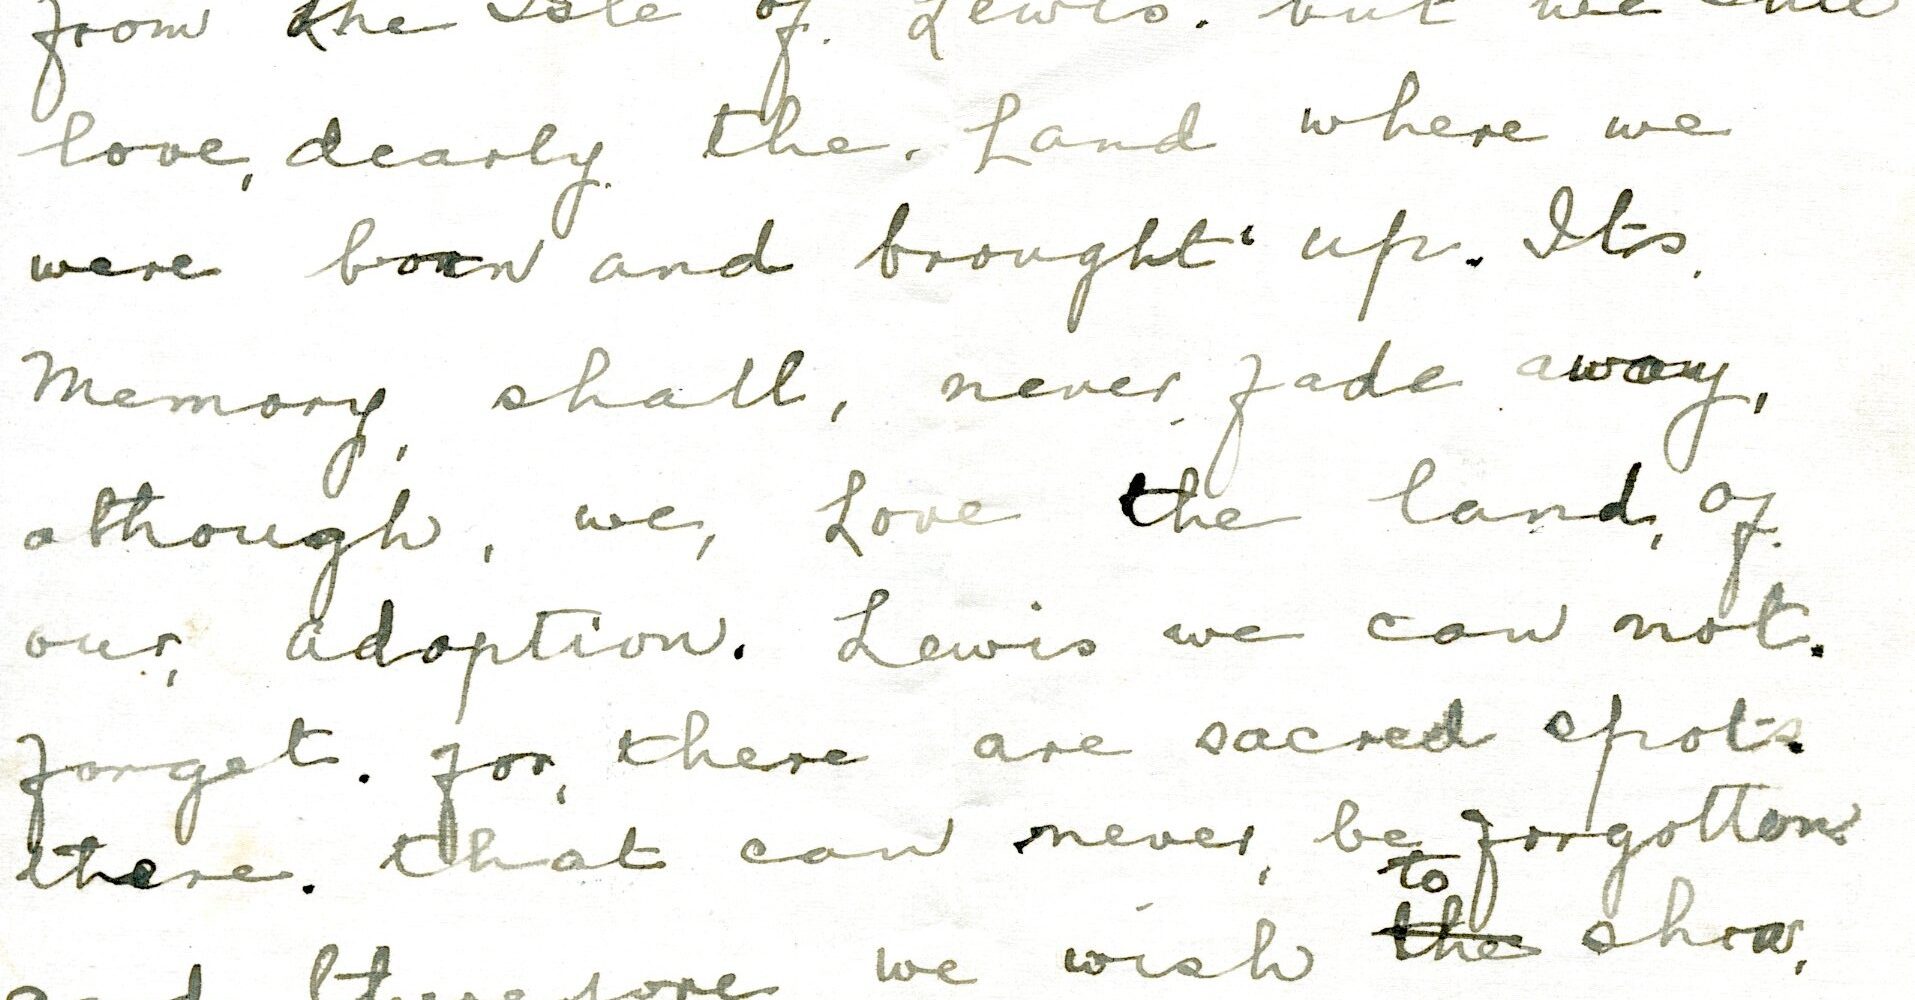 from the Isle of. Lewis. but we
love, dearly. the. Land where we
were born and brought up. Its.
Memory, shall, never, fade away,
athough, we, Love the land, of.
our, adoption. Lewis we can not.
forget. for, there are sacred spots.
there. that can never, be forgotton
to
and therefore we wish the